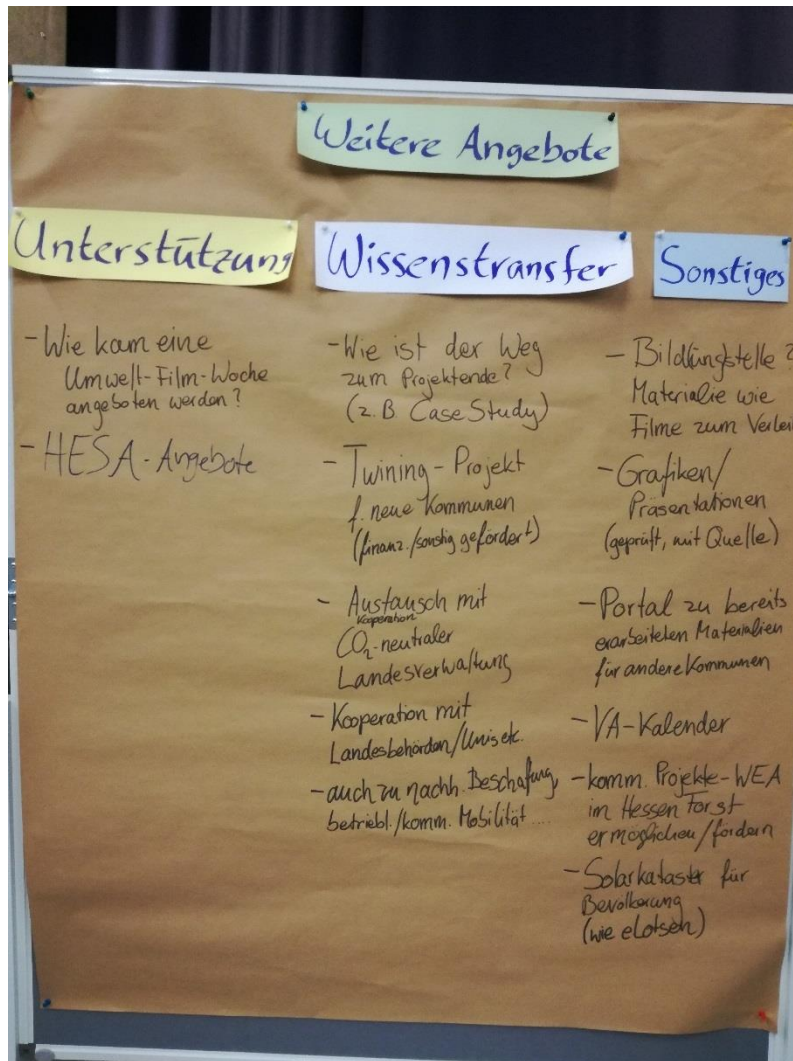 Weitere Angebote
Unterstützung
- Wie kam eine
Umwelt-Film-Woche
angeboten werden?
- HESA-Angebote
Wissenstransfer
- Wie ist der Weg
zum Projektende?
(z.B Case Study)
- Twining-Projekt
f. neue Kommunen
(finanz./sonstig gefördert)
- Austausch mit
Kooperation
CO₂-neutraler
Landesverwaltung
- Kooperation mit
Landesbehörden/Unis etc.
- auch zu nachh. Beschafung,
betriebl./komm. Mobilität ....
Sonstiges
- Bildungstelle?
Materialie wie
Filme zum Verlei
- Grafiken/
Präsentationen
(geprüft, mit Quelle)
- Portal zu bereits
erarbeiteten Materialien
für andere Kommunen
- VA-Kalender
- komm. Projekte-WEA
im Hessen Forst
ermöglichen/fördern
- Solarkataster für
Bevölkerung
(wie eLotsen)